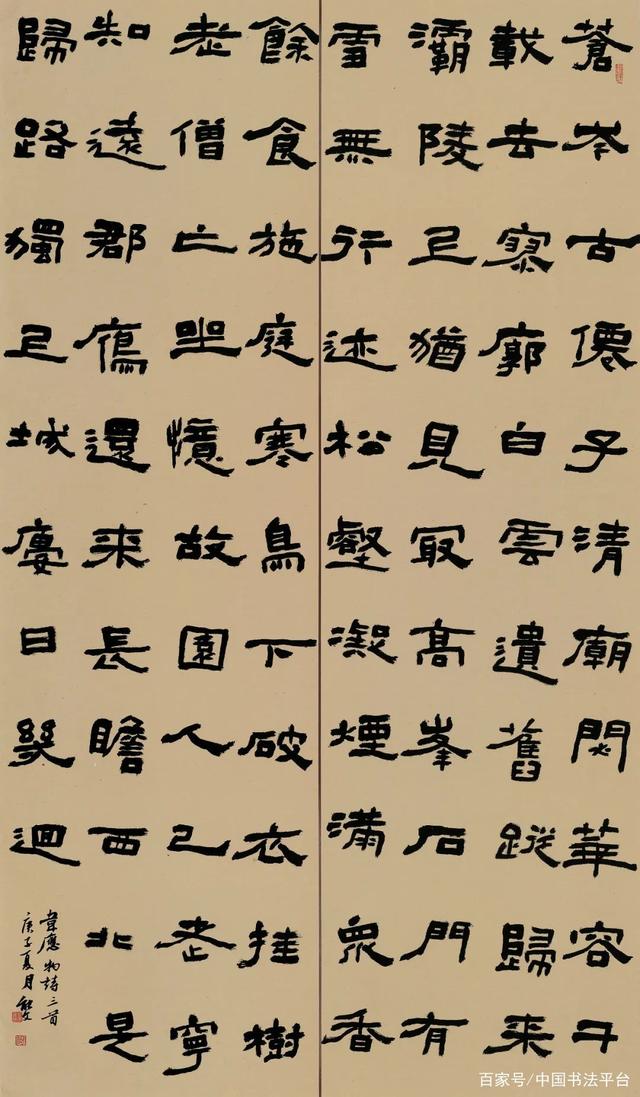 蒼岑古僊子清廟閟華容千
載去寥廓白雲遺舊蹤歸來
灞陵上猶見冣高峯石門有
雪無行迹松壑凝煙滿眾香
餘食施庭寒鳥下破衣挂樹
老僧亡坐憶故園人已老寧
知遠郡鴈還來長瞻西北是
歸路獨上城廔日幾迴
韋應物詩三首
庚子夏月
百家号/中国书法平台